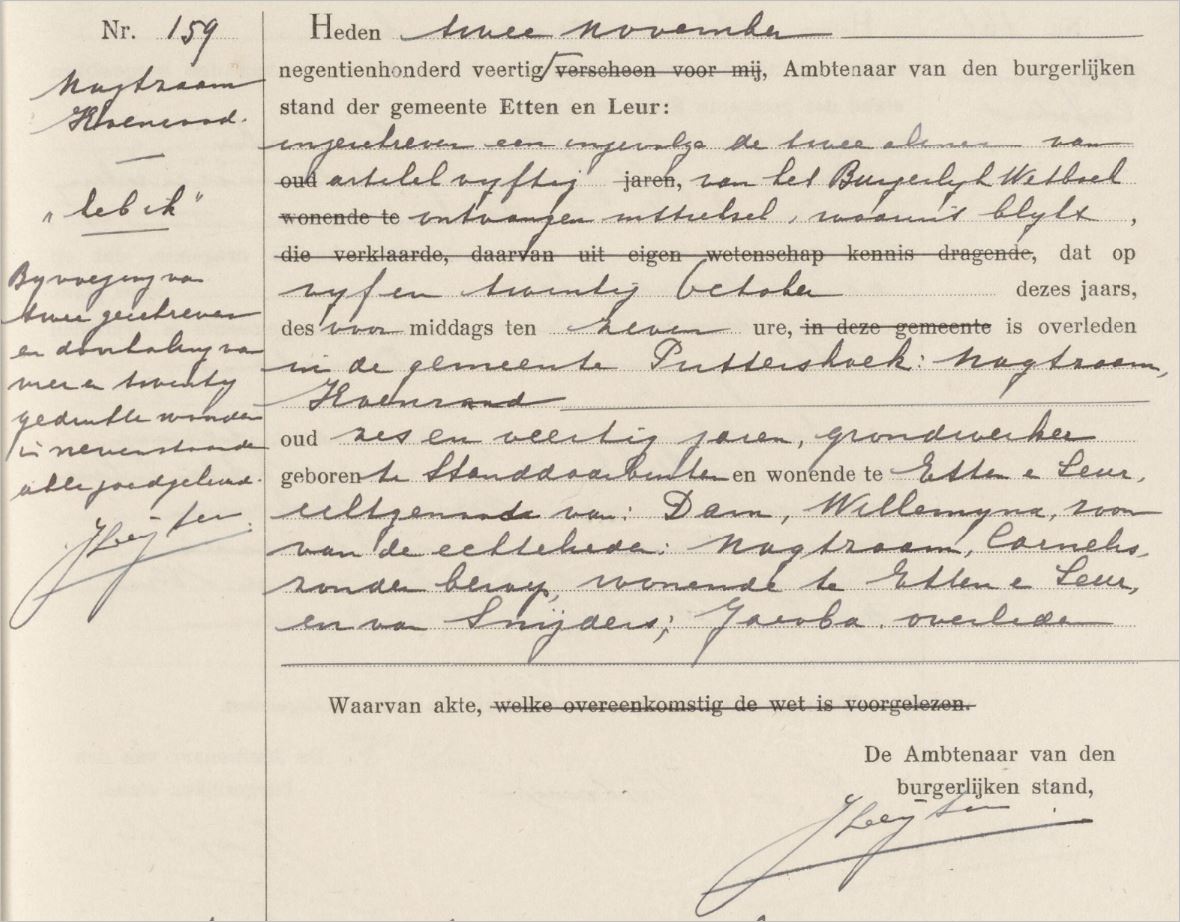 Nr. 159
Nagtzaam
Koenraad.
"lebik"
Byvoeging van
twee geschreven
en doorhaling van
vier en twenty
gedrukte woorden
in nevenstaande
akte goedgekeurd.
Heden twee November
negentienhonderd veertig verscheen voor mij, Ambtenaar van den burgerlijken
stand der gemeente Etten en Leur:
ingeschreven een ingevolge de twee alinea van
oud artikel vyftig jaren, van het Burgerlyk Wetboek
wonende te ontvangen uittreksel, waaruit blykt,
die verklaarde, daarvan uit eigen wetenschap kennis dragende, dat op
vyf en twintig October dezes jaars,
des voor middags ten zeven ure, in deze gemeente is overleden
in de gemeente Puttershoek: Nagtzaam,
Koenraad
oud zes en veertig jaren, grondwerker
geboren te Standdaarbuiten en wonende te Etten e Leur,
echtgenoote van: Dam, Willemyna, zoon
van de echtelieden: Nagtzaam, Cornelis,
zonder beroep, wonende te Etten e Leur,
en van Snijders, Jacoba, overleden
Waarvan akte, welke overeenkomstig de wet is voorgelezen.
De Ambtenaar van den
burgerlijken stand,